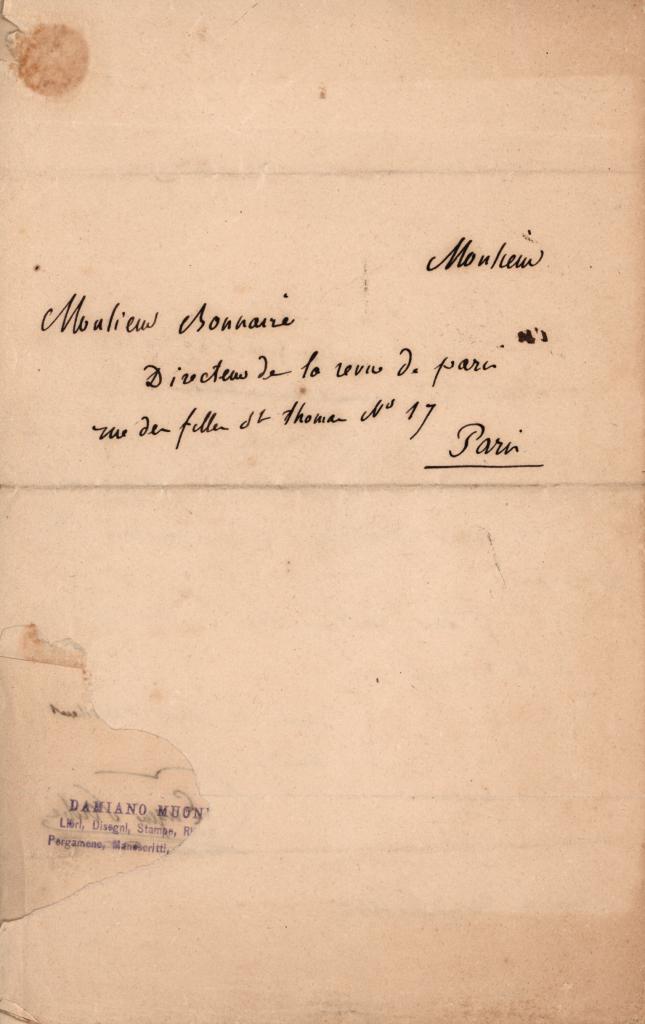 Monsieur
Monsieur Bonnaire
Directeur de la revue de paris
rue des filles St thomas No 17
Paris
DAMIANO MUON'
Libri, Disegni, Stampe, RI
Pergamene, Manoscritti,